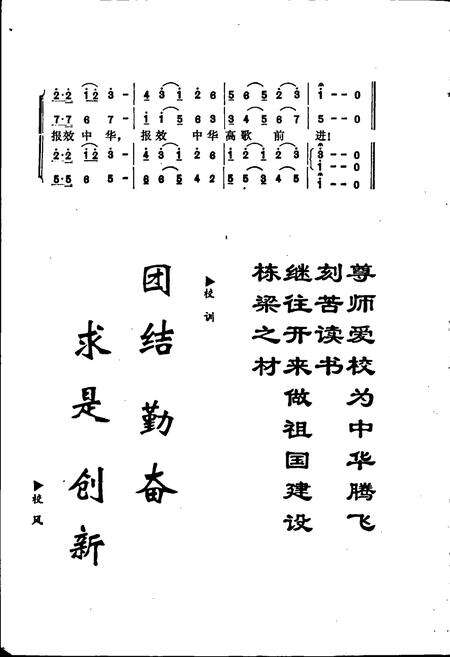 2·2 1 2 3 - | 4 3 1 2 6 | 5 6 5 2 3 | 1 - - 0
7·7 6 7 - | 1 1 5 6 3 | 3 4 5 6 7 | 5 - - 0
报效中华，报效 中华高歌 前 进！
2·2 1 2 3 - | 4 3 1 2 6 | 1 2 1 2 3 | 3 - - 0
1 - - 0
5·5 6 5 - | 6 6 5 4 2 | 5 5 3 4 5 | 1 - - 0
尊师爱校为中华腾飞
刻苦读书
继往开来做祖国建设
栋梁之材
▶校训
团结 勤奋
求是 创新
▶校风